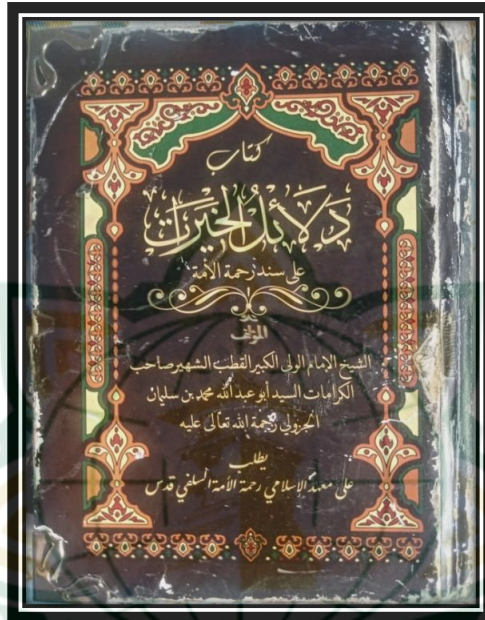 كتاب
دَلَائِلُ الْخَيْرَاتِ
على سند رحمة الأمة
المؤلف
الشيخ الإمام الولى الكبير القطب الشهير صاحب
الكرامات السيد أبو عبد الله محمد بن سليمان
الجزولي رحمة الله تعالى عليه
يطلب
على معهد الإسلامي رحمة الأمة السلفي قدس